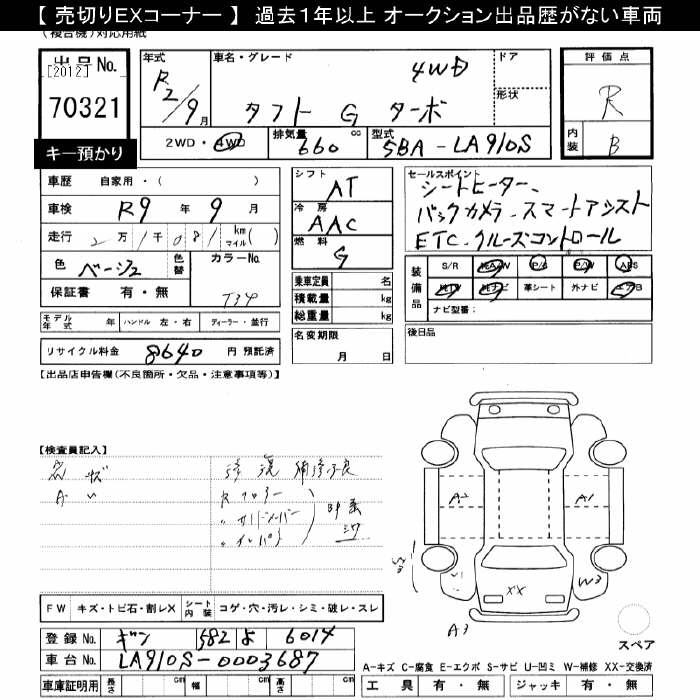 【 売切りEXコーナー 】 過去1年以上 オークション出品歴がない車両
(複合機)対応用紙
出品No.
[2012]
70321
キー預かり
年式
R2/9月
車名・グレード
4WD
タフト G ターボ
ドア
形状
2WD・4WD
排気量
660 cc
型式
5BA-LA910S
評価点
R
内装
B
車歴 自家用・( )
車検 R9 年 9 月
走行 2万1千081 km マイル( )
色 ベージュ
色替
カラーNo.
T34
保証書 有・無
モデル年式 年 ハンドル 左・右 ディーラー・並行
リサイクル料金 8640 円 預託済
シフト
AT
冷房
AAC
燃料
G
乗車定員 名
積載量 kg
総重量 kg
名変期限
月 日
セールスポイント
シートヒーター、
バックカメラ、スマートアシスト
ETC、クルーズコントロール
装備品
S/R 純A/W P/S P/W ABS
純TV 純ナビ 革シート 外ナビ エアB
ナビ型番:
後日品
【出品店申告欄(不良箇所・欠品・注意事項等)】
【検査員記入】
修復 補修不良
Rフロアー
〃 サイドメンバー
〃 インパネ
A2
A1
W3
XX
A3
スペア
FW キズ・トビ石・割レX シート内装 コゲ・穴・汚レ・シミ・破レ・スレ
登録No. 582 よ 6014
車台No. LA910S-0003687
車庫証明用 長さ cm 幅 cm 高さ cm
A-キズ C-腐食 E-エクボ S-サビ U-凹ミ W-補修 XX-交換済
工具 有・無 ジャッキ 有・無